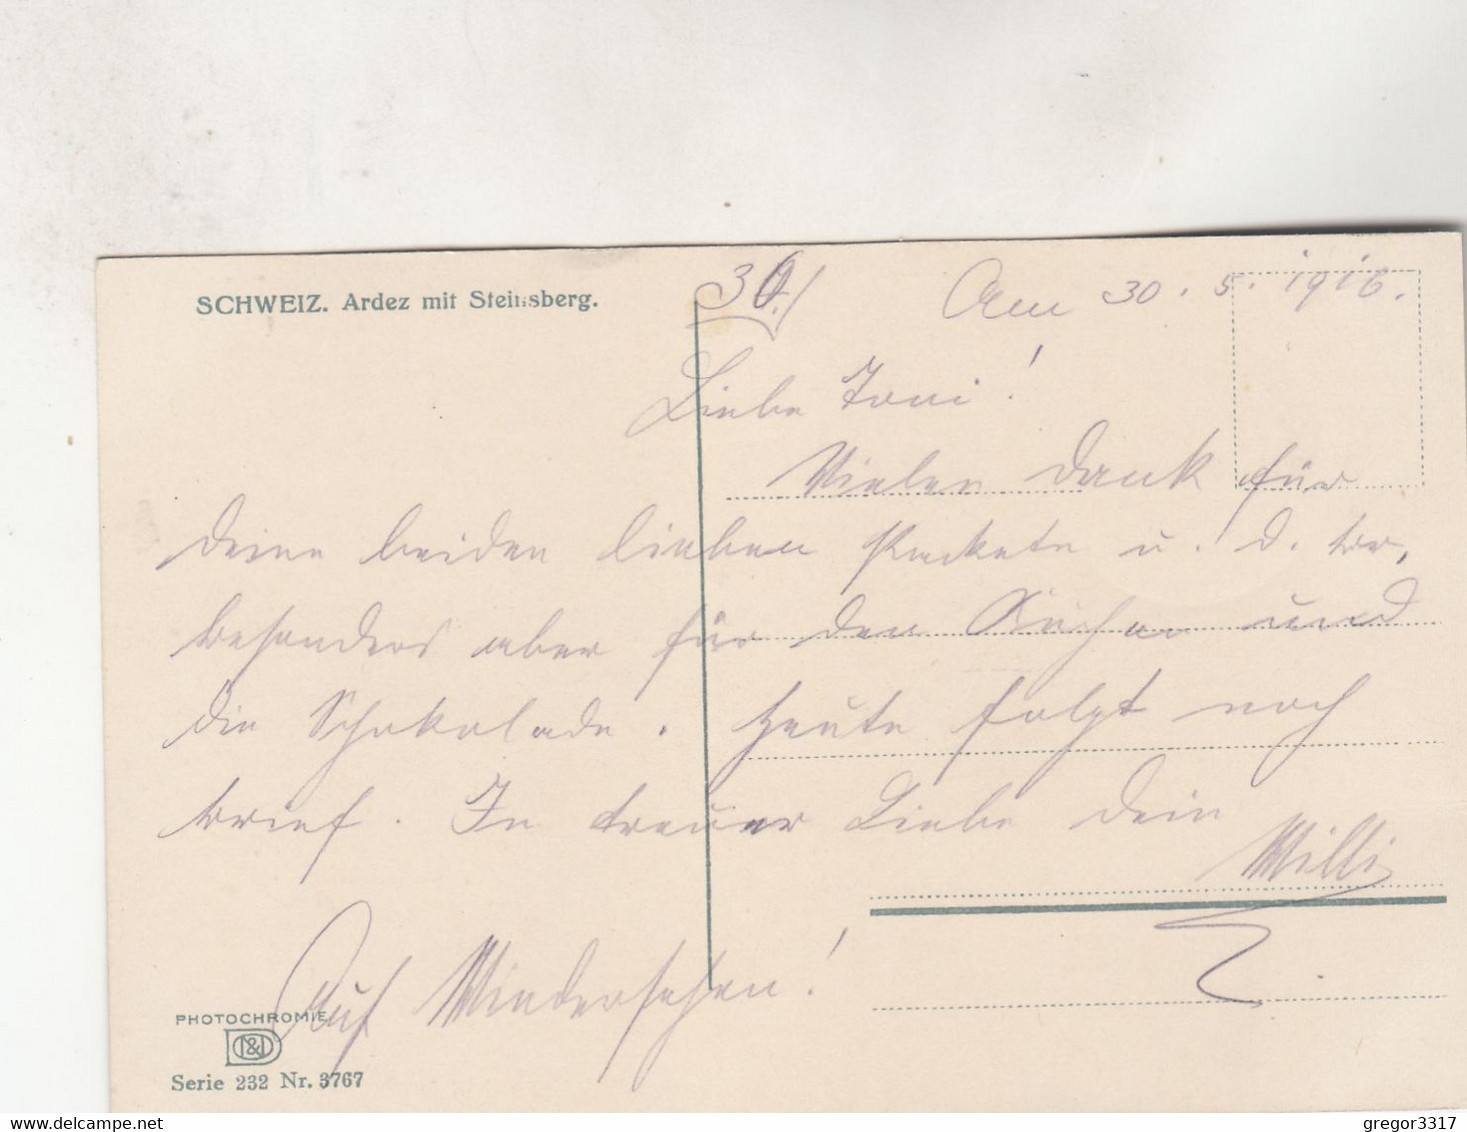 SCHWEIZ. Ardez mit Steinsberg.
30./
Am 30. 5. 1916.
Liebe Toni!
Vielen Dank für
Deine beiden lieben Packete u. d. Br.
besonders aber für den Kuchen und
die Schokolade. Heute folgt noch
Brief. In treuer Liebe Dein
Willi
Auf Wiedersehen!
PHOTOCHROMIE
Serie 232 Nr. 3767
delcampe.net
gregor3317